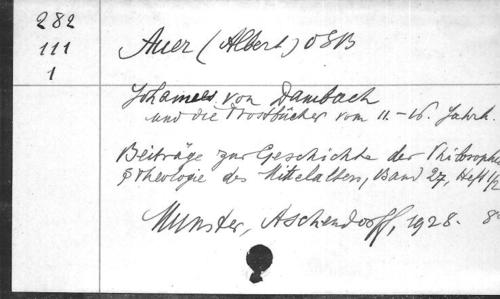 282
111
1
Auer (Albert) OSB
Johannes von Dambach
und die Trostbücher vom 11.-16. Jahrh.
Beiträge zur Geschichte der Philosophie
& Theologie des Mittelalters, Band 27, Heft 1/2
Münster, Aschendorff, 1928. 8